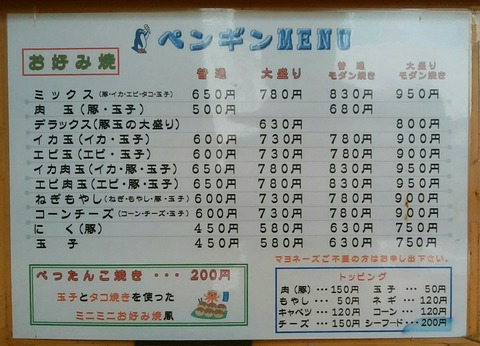 ペンギンMENU
お好み焼
普通 大盛り 普通モダン焼き 大盛りモダン焼き
ミックス(豚・イカ・エビ・タコ・玉子) 650円 780円 830円 950円
肉玉(豚・玉子) 500円 680円
デラックス(豚玉の大盛り) 630円 800円
イカ玉(イカ・玉子) 600円 730円 780円 900円
エビ玉(エビ・玉子) 600円 730円 780円 900円
イカ肉玉(イカ・豚・玉子) 650円 780円 830円 950円
エビ肉玉(エビ・豚・玉子) 650円 780円 830円 950円
ねぎもやし(ねぎ・もやし・豚・玉子) 600円 730円 780円 900円
コーンチーズ(コーン・チーズ・玉子) 600円 730円 780円 900円
にく(豚) 450円 580円 630円 750円
玉子 450円 580円 630円 750円
マヨネーズご不要の方はお申し出下さい。
ぺったんこ焼き・・・200円
玉子とタコ焼きを使った
ミニミニお好み焼風
トッピング
肉(豚)・・・150円 玉子・・・50円
もやし・・・50円 ネギ・・・120円
キャベツ・・・100円 コーン・・・120円
チーズ・・・150円 シーフード・・・200円